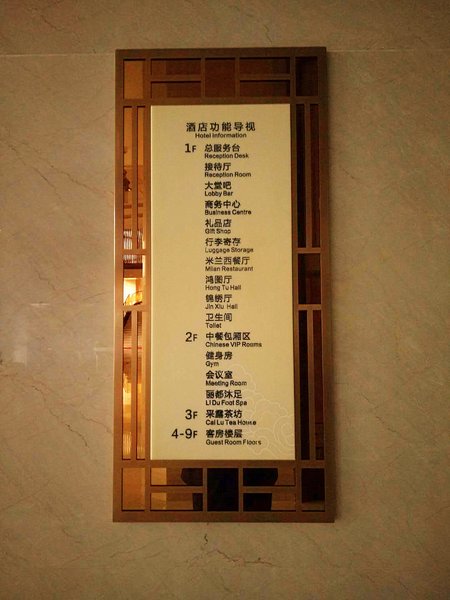 酒店功能导视
Hotel Information
1F 总服务台
Reception Desk
接待厅
Reception Room
大堂吧
Lobby Bar
商务中心
Business Centre
礼品店
Gift Shop
行李寄存
Luggage Storage
米兰西餐厅
Milan Restaurant
鸿图厅
Hong Tu Hall
锦绣厅
Jin Xiu Hall
卫生间
Toilet
2F 中餐包厢区
Chinese VIP Rooms
健身房
Gym
会议室
Meeting Room
丽都沐足
Li Du Foot Spa
3F 采露茶坊
Cai Lu Tea House
4-9F 客房楼层
Guest Room Floors